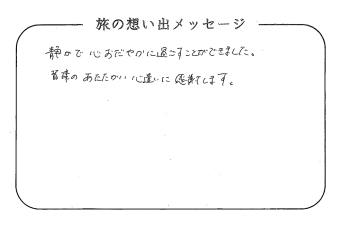 旅の想い出メッセージ
静かで心おだやかに過すことができました。
皆様のあたたかい心遣いに感謝します。